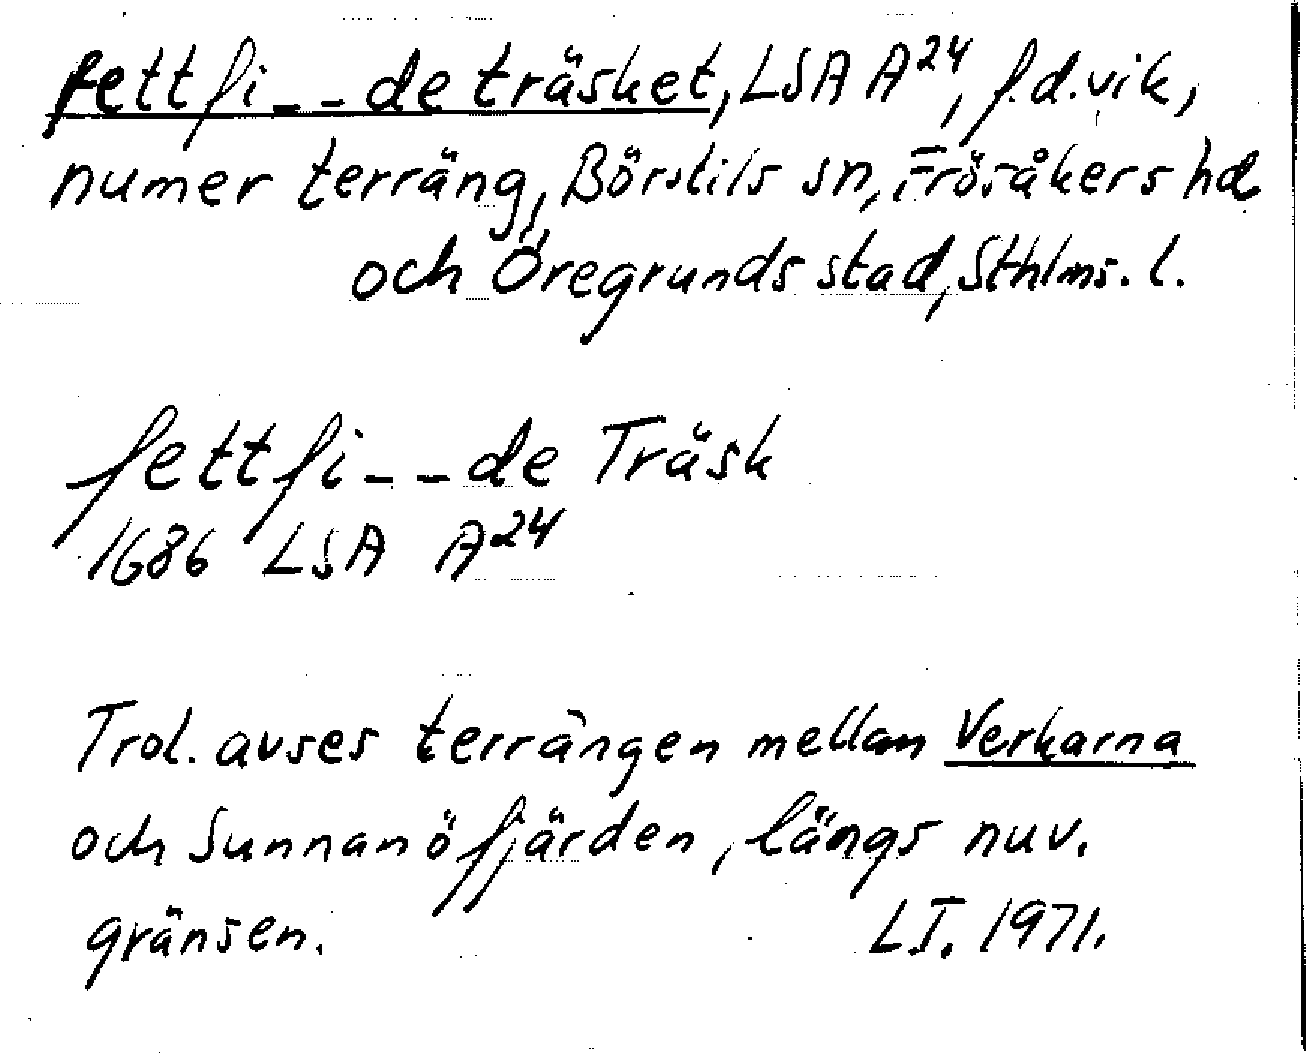 fettfi_ _de träsket, LSA A24, f.d. vik,
numer terräng, Börstils sn, Frösåkers hd
och Öregrunds stad, Sthlms. l.
fettfi_ _de Träsk
1686 LSA A24
Trol. avses terrängen mellan Verkarna
och Sunnanöfjärden, längs nuv.
gränsen. LI. 1971.